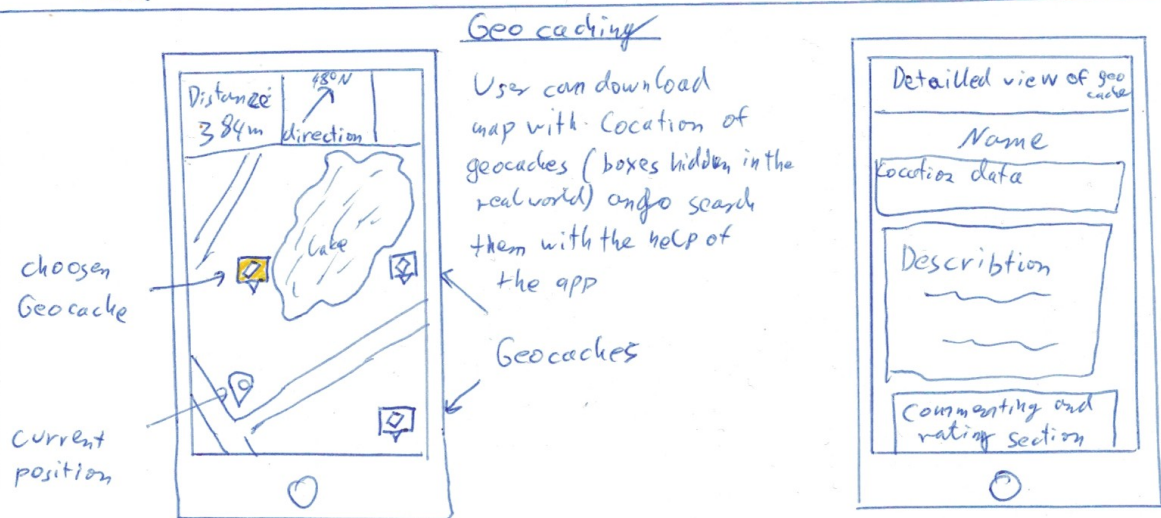 Geocaching
Distanze
384m
48°N
direction
Lake
choosen
Geocache
current
position
User can download
map with Location of
geocaches (boxes hidden in the
real world) and search
them with the help of
the app
Geocaches
Detailled view of geo
cache
Name
Location data
Describtion
Commenting and
rating section